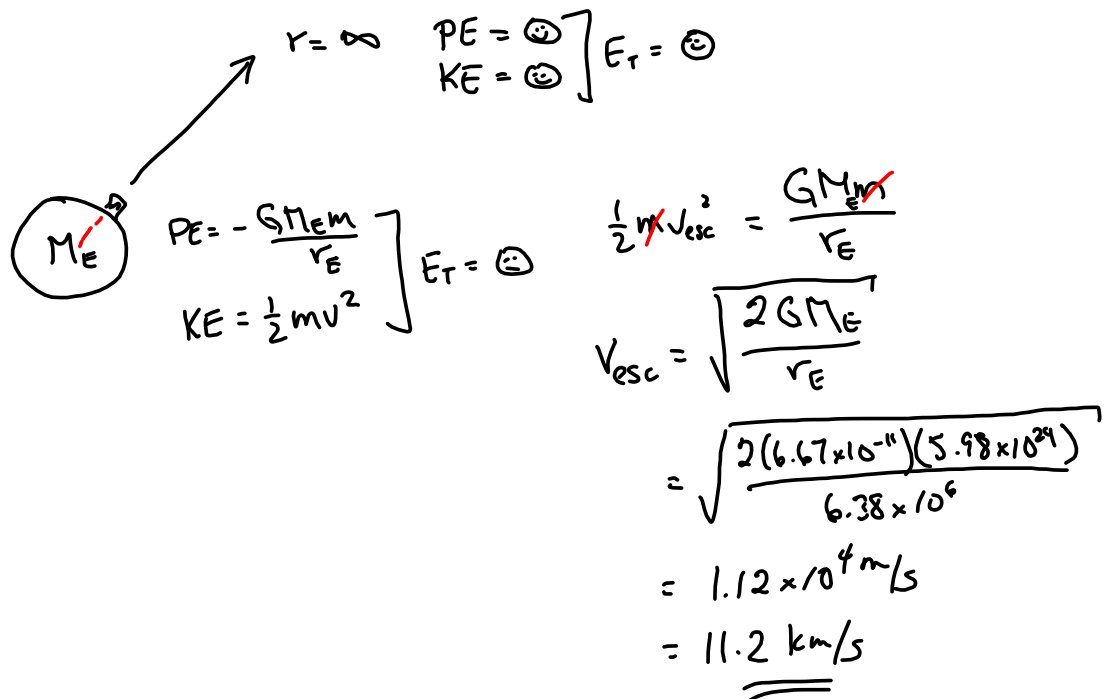 r = ∞
PE = ☺
KE = ☺
E_T = ☺
M_E
m
PE = - GM_Em / r_E
KE = 1/2 mv²
E_T = ☺
1/2 mv_esc² = GM_Em / r_E
v_esc = √(2GM_E / r_E)
= √(2(6.67×10⁻¹¹)(5.98×10²⁴) / 6.38×10⁶)
= 1.12×10⁴ m/s
= 11.2 km/s